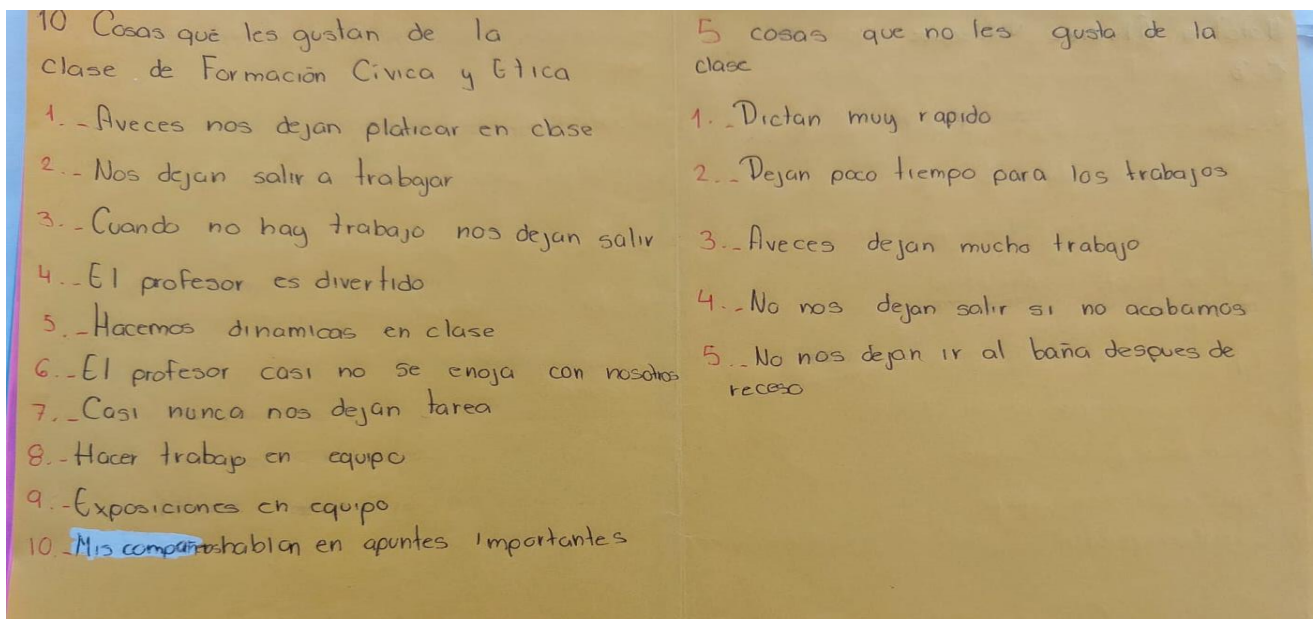 10 Cosas que les gustan de la
clase de Formación Cívica y Etica
1.- Aveces nos dejan platicar en clase
2.- Nos dejan salir a trabajar
3.- Cuando no hay trabajo nos dejan salir
4.- El profesor es divertido
5.- Hacemos dinamicas en clase
6.- El profesor casi no se enoja con nosotros
7.- Casi nunca nos dejan tarea
8.- Hacer trabajo en equipo
9.- Exposiciones en equipo
10.- Mis compañeros hablan en apuntes importantes
5 cosas que no les gusta de la
clase
1.- Dictan muy rapido
2.- Dejan poco tiempo para los trabajos
3.- Aveces dejan mucho trabajo
4.- No nos dejan salir si no acabamos
5.- No nos dejan ir al baña despues de
receso